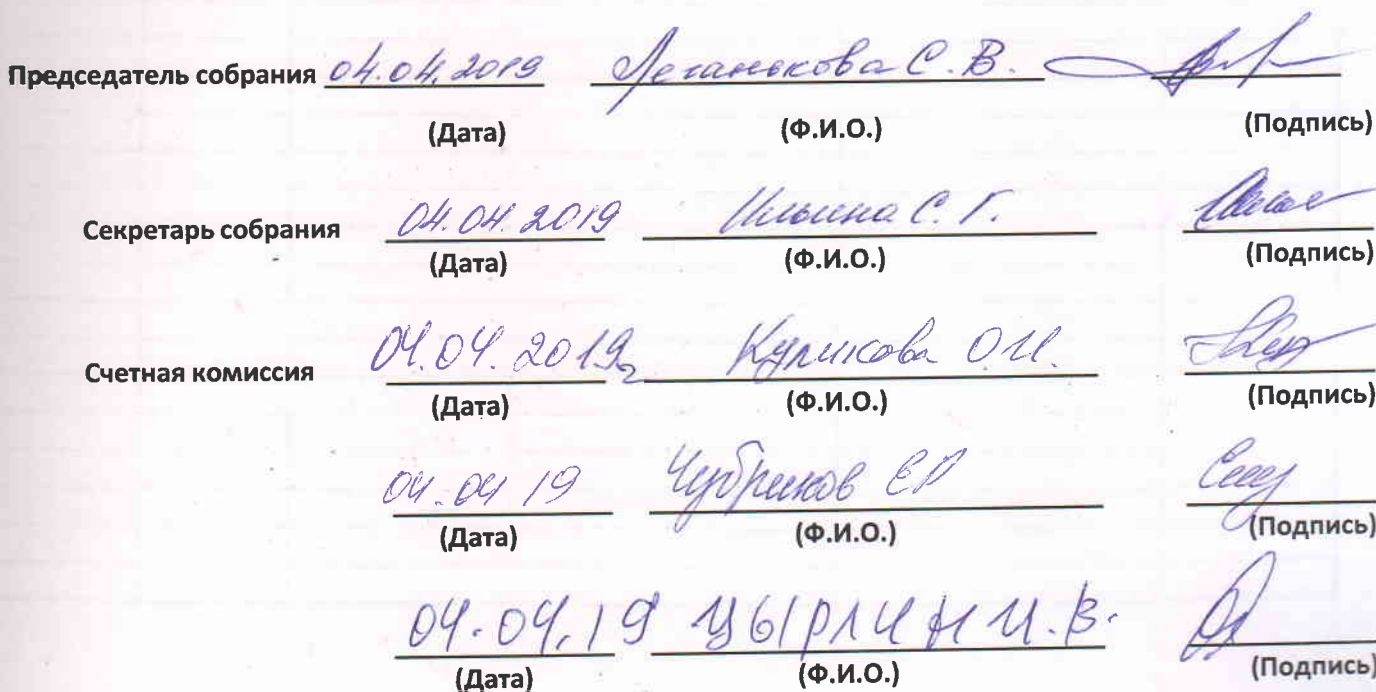 Председатель собрания 04.04.2019 Леганькова С. В.
(Дата) (Ф.И.О.) (Подпись)
Секретарь собрания 04.04.2019 Ильина С. Г.
(Дата) (Ф.И.О.) (Подпись)
Счетная комиссия 04.04.2019г Куликова О.И.
(Дата) (Ф.И.О.) (Подпись)
04.04 19 Чубриков
(Дата) (Ф.И.О.) (Подпись)
04.04.19 ЦЫРЛИН И.В.
(Дата) (Ф.И.О.) (Подпись)